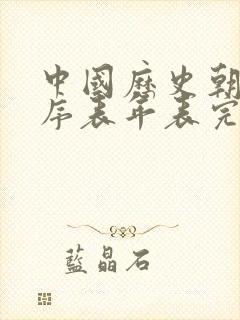 中國歷史朝
序表年表完
藍晶石